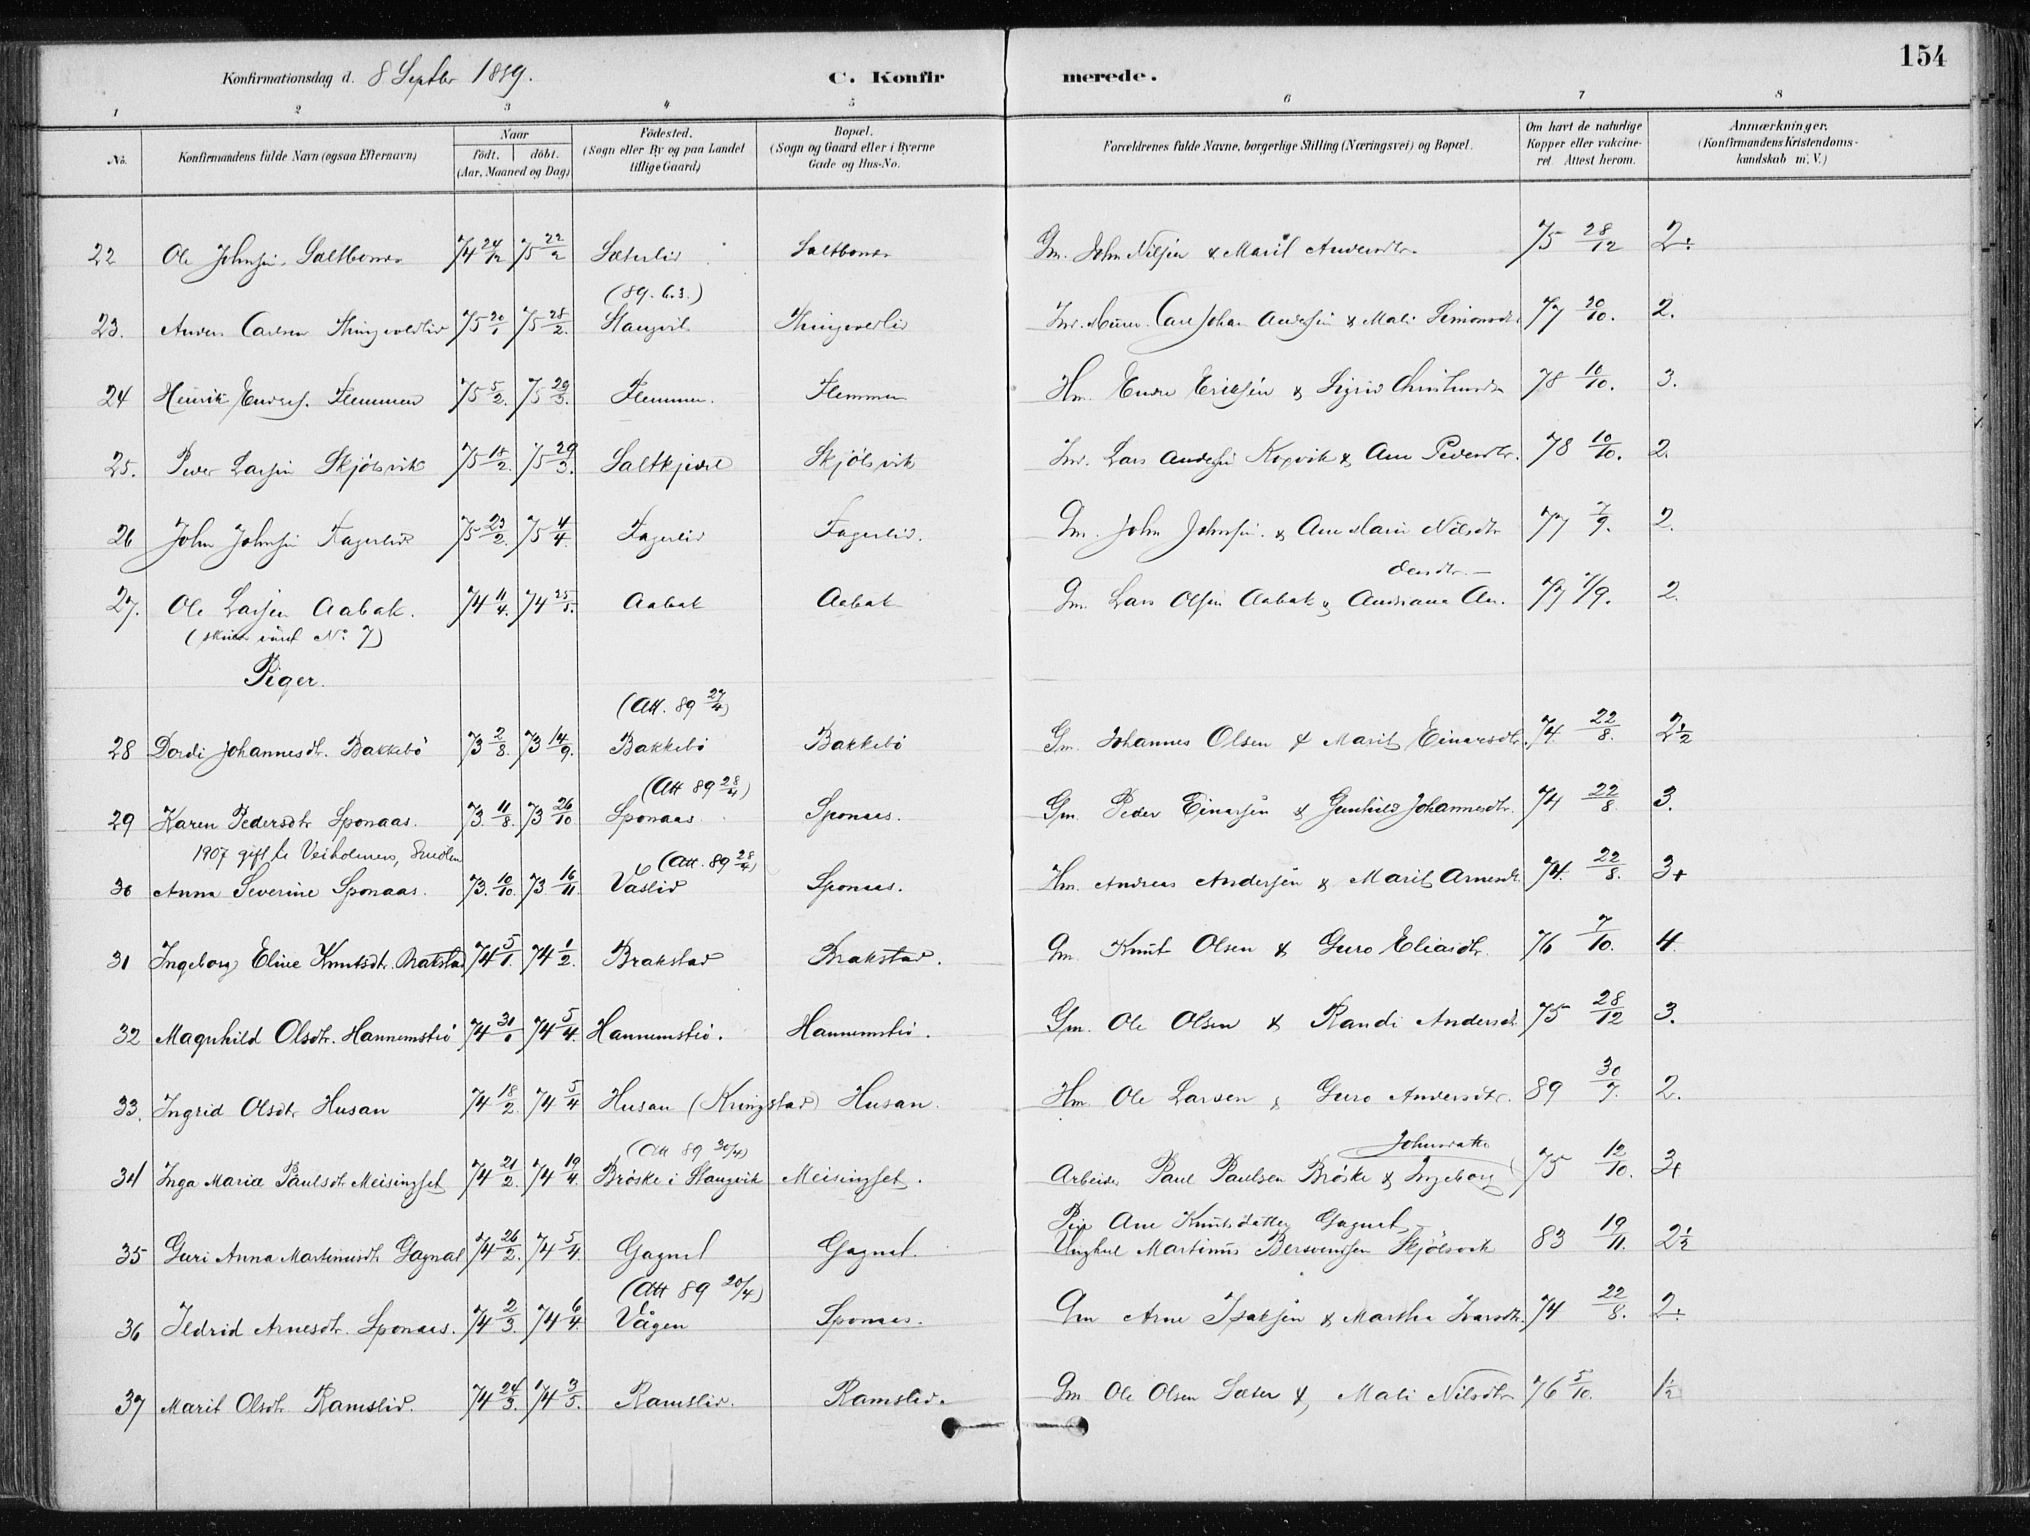 154
Konfirmationsdag d. 8 Septbr 1889. C. Konfirmerede.
1 2 3 4 5 6 7 8
No. Konfirmandens fulde Navn (ogsaa Efternavn) Naar födt. döbt. (Aar, Maaned og Dag) Födested. (Sogn eller By og paa Landet tillige Gaard) Bopæl. (Sogn og Gaard eller i Byerne Gade og Hus-No. Forældrenes fulde Navne, borgerlige Stilling (Næringsvei) og Bopæl. Om havt de naturlige Kopper eller vakcineret. Attest herom. Anmærkninger. (Konfirmandens Kristendomskundskab m. V.)
22 Ole Johnsen 74 24/12 75 22/2 Sæterlid Gm. John Nilsen & Marit Andersdtr. 75 28/12 2+
(89. 6.3.)
23. Anders Carlsen Thingvoldlid 75 20/1 75 28/2. Stangvik Thingvoldlid Carl Johan Andersen & Mali Simonsdtr 77 20/10. 2.
24 Henrik Endres. Flemmen 75 5/2. 75 29/3. Flemmen. Flemmen Hm. Endre Eriksen & Sigrid 78 10/10. 3.
25. Peder Larsen Skjölsvik 75 18/2. 75 29/3. Saltkjisel Skjölsvik Ind. Lars Andersen & Ane Pedersdtr. 78 10/10. 2.
26 John Johnsen Fagerlid 75 23/2. 75 4/4. Fagerlid Fagerlid. Gm. John Johnsen. & Ane Marie Nilsdtr 77 7/9. 2.
27. Ole Larsen Aabak. 74 11/4. 74 25/5. Aabak Aabak Gm. Lars Olsen Aabak & Andriana An. dersdtr.— 77 7/9. 2.
(skulde været No. 7)
Piger.
(Att. 89 27/4)
28 Dordi Johannesdt. Bakkebö 73 2/8. 73 14/9. Bakkebö Bakkebö Gm. Johannes Olsen & Marit Einarsdtr. 74. 22/8. 2½
(Att 89 28/4)
29 Karen Pedersdtr Sponaas. 73. 11/8. 73 26/10 Sponaas Sponaas. Gm. Peder Einarsen & Gunhild Johannesdtr. 74 22/8 3.
1907 gift til Veiholmen, Smölen (Att. 89 28/4)
30 Anna Severine Sponaas. 73. 10/10. 73 16/11. Vaslid Sponaas. Hm. Andreas Andersen & Marit Arnesdt. 74. 22/8. 3+
31 Ingeborg Eline Knutsdtr. Brakstad 74 5/1. 74 1/2. Brakstad Brakstad. Gm. Knut Olsen & Guro Eliasdtr. 76 7/10. 4.
32 Magnhild Olsdtr. Hannemströ 74 31/1 74 5/4. Hannemströ. Hannemströ. Gm. Ole Olsen & Randi Andersdt 75 28/12 3.
33. Ingrid Olsdtr Husan 74 18/2. 74 5/4 Husan (Kringstad) Husan. Hm. Ole Larsen & Guro Andersdtr. 89 30/7. 2.
(Att 89 30/4)
34 Inga Marie Paulsdt Meisingset 74 21/2. 74 19/4. Bröske i Stangvik Meisingset. Arbeider Paul Paulsen Bröske & Ingeborg Johnsdatter 75 12/10. 3+
35 Guri Anna Martinusdt. Gagnat 74 26/2. 74 5/4. Gagnat Gagnat. Pige Ane Knutsdatter Gagnat
Ungkarl Martinus Bersvendsen Skjölsvik 83 19/11. 2½
(Att 89 20/4)
36 Ildrid Arnesdtr. Sponaas. 74 2/3. 74 6/4. Vågen Sponaas. Gm Arne Isaksen & Martha Ivarsdtr. 74 22/8. 2+
37 Marit Olsdtr Ramslid. 74 24/3. 74 3/5. Ramslid. Ramslid. Gm Ole Olsen Sæter & Mali Nilsdtr 76 5/10. 1½